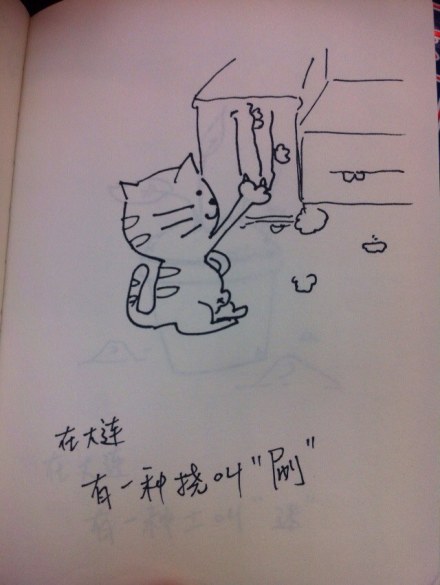 在大连
有一种挠叫"刷"